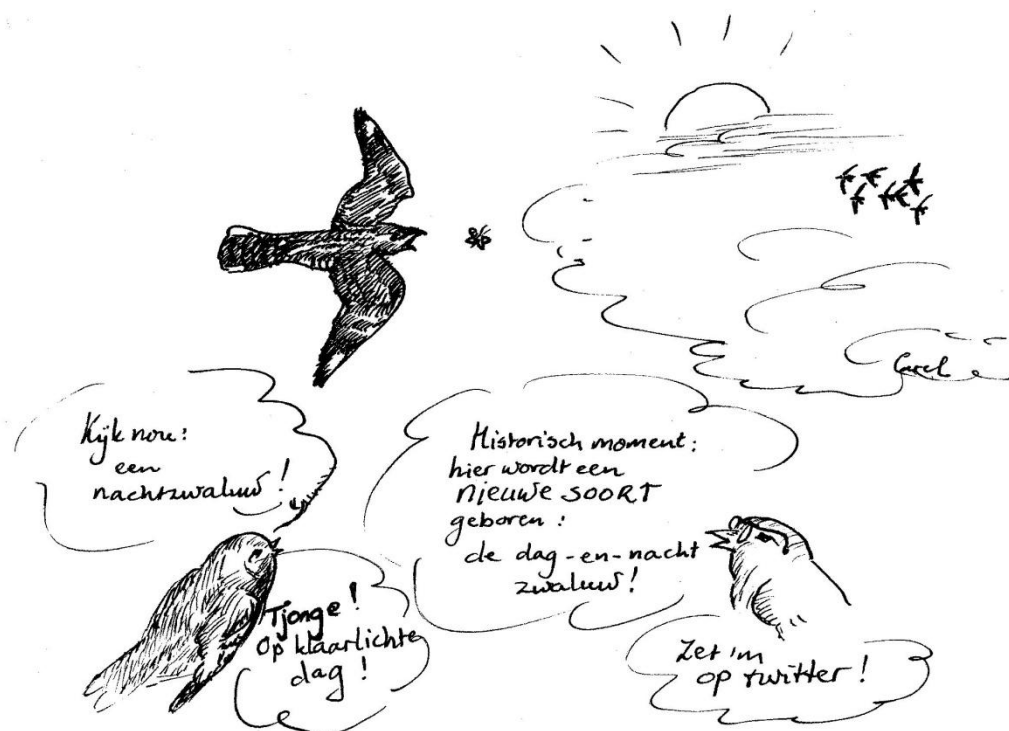 Kijk nou:
een
nachtzwaluw!
Tjonge!
Op klaarlichte
dag!
Historisch moment:
hier wordt een
nieuwe SOORT
geboren:
de dag-en-nacht
zwaluw!
Zet 'm
op twitter!
Carel